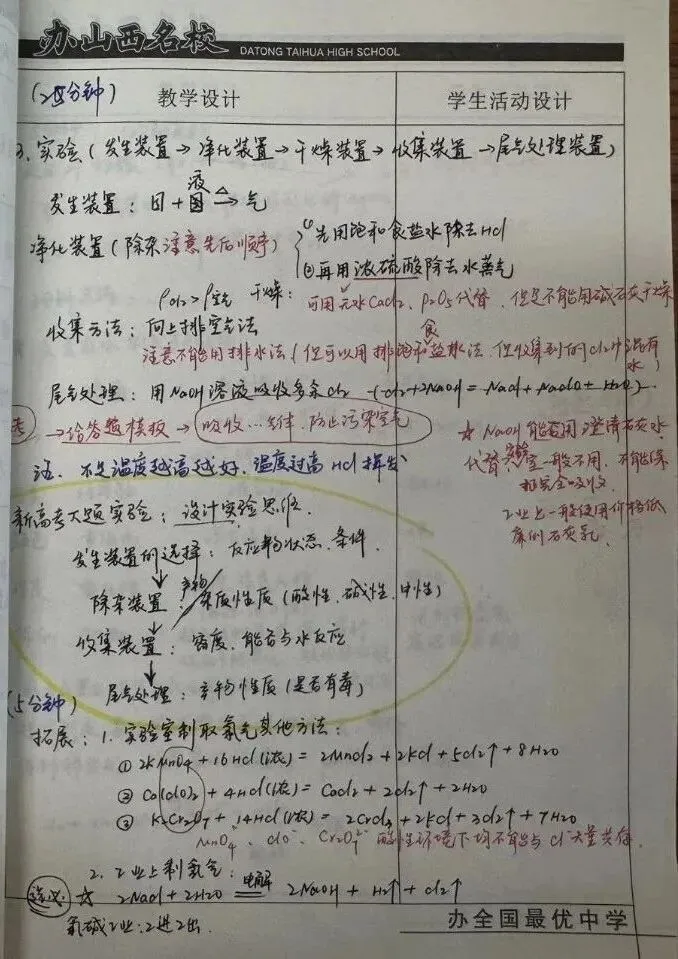 办山西名校 DATONG TAIHUA HIGH SCHOOL
(25分钟) 教学设计 学生活动设计
3、实验(发生装置→净化装置→干燥装置→收集装置→尾气处理装置)
发生装置:固+固液 △→气
净化装置(除杂注意先后顺序) ①先用饱和食盐水除去HCl
②再用浓硫酸除去水蒸气
ρCl2>ρ空气 干燥:可用无水CaCl2、P2O5代替,但是不能用碱石灰干燥
收集方法:向上排空气法
注意不能用排水法(但可以用排饱和食盐水法,但收集到的Cl2中混有水)
尾气处理:用NaOH溶液吸收多余Cl2 (Cl2+2NaOH=NaCl+NaClO+H2O)
考→给答题模板→吸收…气体,防止污染空气
☆NaOH能否用澄清石灰水
代替 实验室一般不用,不能保
担完全吸收
工业上一般使用价格低
廉的石灰乳
注、不是温度越高越好,温度过高HCl挥发
新高考大题实验:设计实验思维
发生装置的选择:反应物状态、条件
↓
除杂装置:产物 杂质性质(酸性、碱性、中性)
↓
收集装置:密度、能否与水反应
↓
尾气处理:产物性质(是否有毒)
(5分钟)
拓展:1.实验室制取氯气其他方法:
①2KMnO4+16HCl(浓)=2MnCl2+2KCl+5Cl2↑+8H2O
②Ca(ClO)2+4HCl(浓)=CaCl2+2Cl2↑+2H2O
③K2Cr2O7+14HCl(浓)=2CrCl3+2KCl+3Cl2↑+7H2O
MnO4⁻、ClO⁻、Cr2O7²⁻酸性环境下均不能与Cl⁻大量共存
2.工业上制氯气:
选必 ☆ 2NaCl+2H2O 电解 2NaOH+H2↑+Cl2↑
氯碱工业:2进2出
办全国最优中学